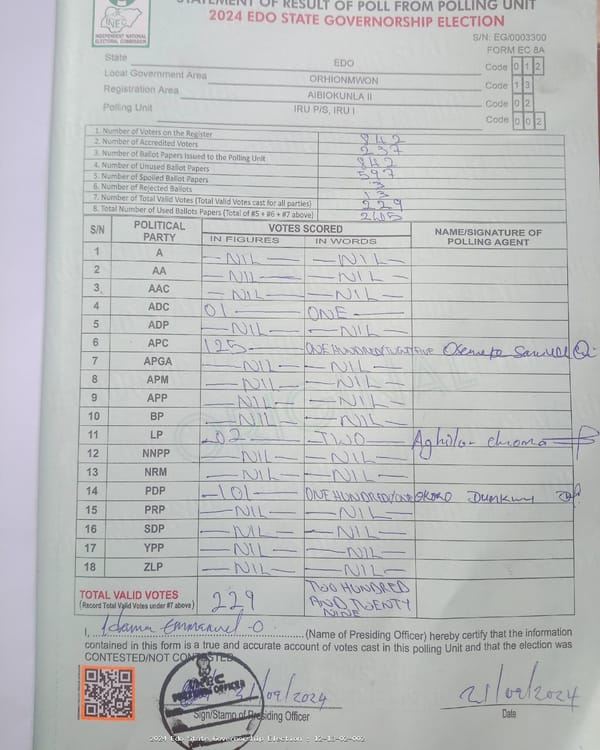 STATEMENT OF RESULT OF POLL FROM POLLING UNIT
2024 EDO STATE GOVERNORSHIP ELECTION
INEC
INDEPENDENT NATIONAL ELECTORAL COMMISSION
S/N: EG/0003300
FORM EC 8A
State EDO Code 0 1 2
Local Government Area ORHIONMWON Code 1 3
Registration Area AIBIOKUNLA II Code 0 2
Polling Unit IRU P/S, IRU I Code 0 0 2
1. Number of Voters on the Register 842
2. Number of Accredited Voters 237
3. Number of Ballot Papers Issued to the Polling Unit 842
4. Number of Unused Ballot Papers 597
5. Number of Spoiled Ballot Papers 3
6. Number of Rejected Ballots 13
7. Number of Total Valid Votes (Total Valid Votes cast for all parties) 229
8. Total Number of Used Ballots Papers (Total of #5 + #6 + #7 above)
S/N POLITICAL PARTY VOTES SCORED NAME/SIGNATURE OF POLLING AGENT
IN FIGURES IN WORDS
1 A NIL NIL
2 AA NIL NIL
3 AAC NIL NIL
4 ADC 01 ONE
5 ADP NIL NIL
6 APC 125 ONE HUNDRED/ Samuel O.
7 APGA NIL NIL
8 APM NIL NIL
9 APP NIL NIL
10 BP NIL NIL
11 LP 02 TWO
12 NNPP NIL NIL
13 NRM NIL NIL
14 PDP 101 ONE HUNDRED/ONE
15 PRP NIL NIL
16 SDP NIL NIL
17 YPP NIL NIL
18 ZLP NIL NIL
TOTAL VALID VOTES 229 TWO HUNDRED
(Record Total Valid Votes under #7 above) AND TWENTY
NINE
I, Idama Emmanuel O (Name of Presiding Officer) hereby certify that the information
contained in this form is a true and accurate account of votes cast in this polling Unit and that the election was
CONTESTED/NOT CONTESTED
INEC
PRESIDING OFFICER
21/09/2024 21/09/2024
Sign/Stamp of Presiding Officer Date
2024 Edo State Governorship Election - 12-13-02-002